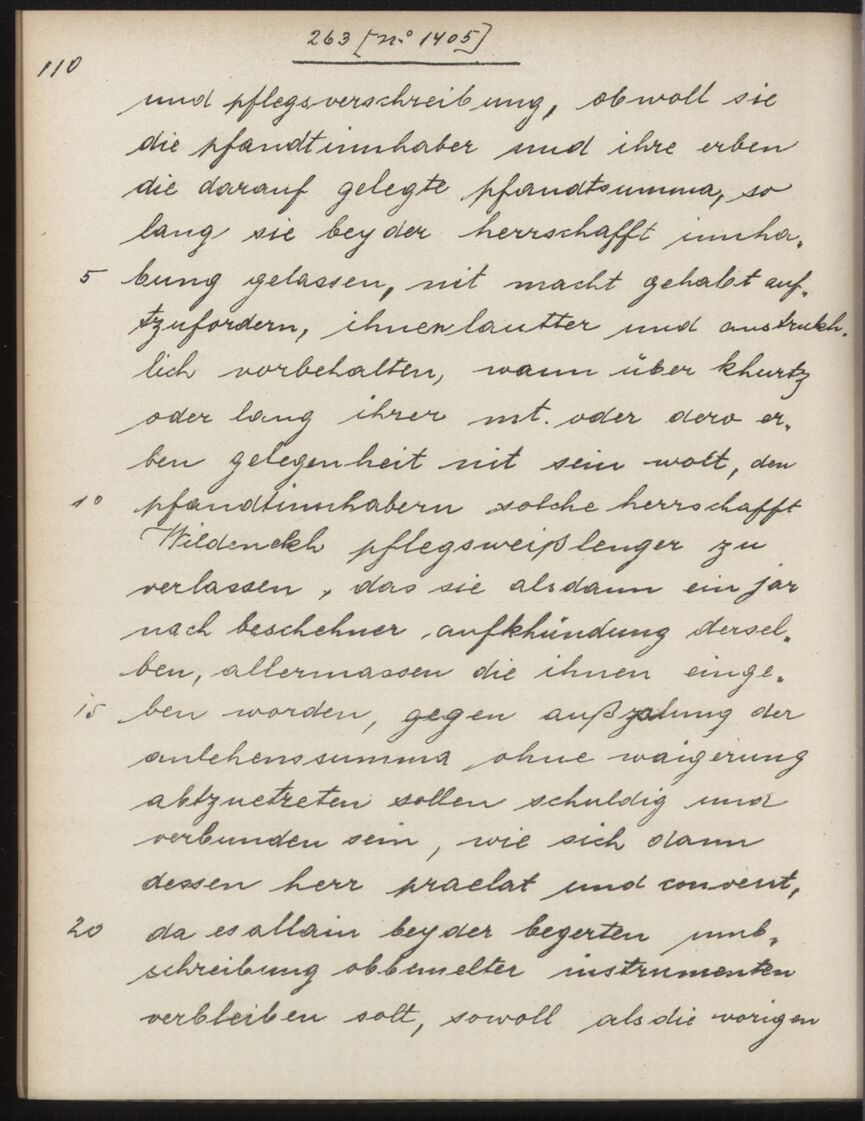 263 [n.° 1405]
110
und pflegsverschreibung, obwoll sie
die pfandtinnhaber und ihre erben
die darauf gelegte pfandtsumma, so
lang sie bey der herrschafft innha-
5 bung gelassen, nit macht gehabt auf-
tzufordern, ihnen lautter und austrukh-
lich vorbehalten, wann über khurtz
oder lang ihrer mt. oder dero er-
ben gelegenheit nit sein wolt, den
10 pfandtinnhabern solche herrschafft
Wildenekh pflegsweiß lenger zu
verlassen, das sie alsdann ein jar
nach beschehner aufkhündung dersel-
ben, allermassen die ihnen einge-
15 ben worden, gegen außzalung der
anlehenssumma ohne waigerung
abtzuetreten sollen schuldig und
verbunden sein, wie sich dann
dessen herr praelat und convent,
20 da es allain bey der begerten umb-
schreibung obbemelter instrumenten
verbleiben solt, sowoll als die vorigen